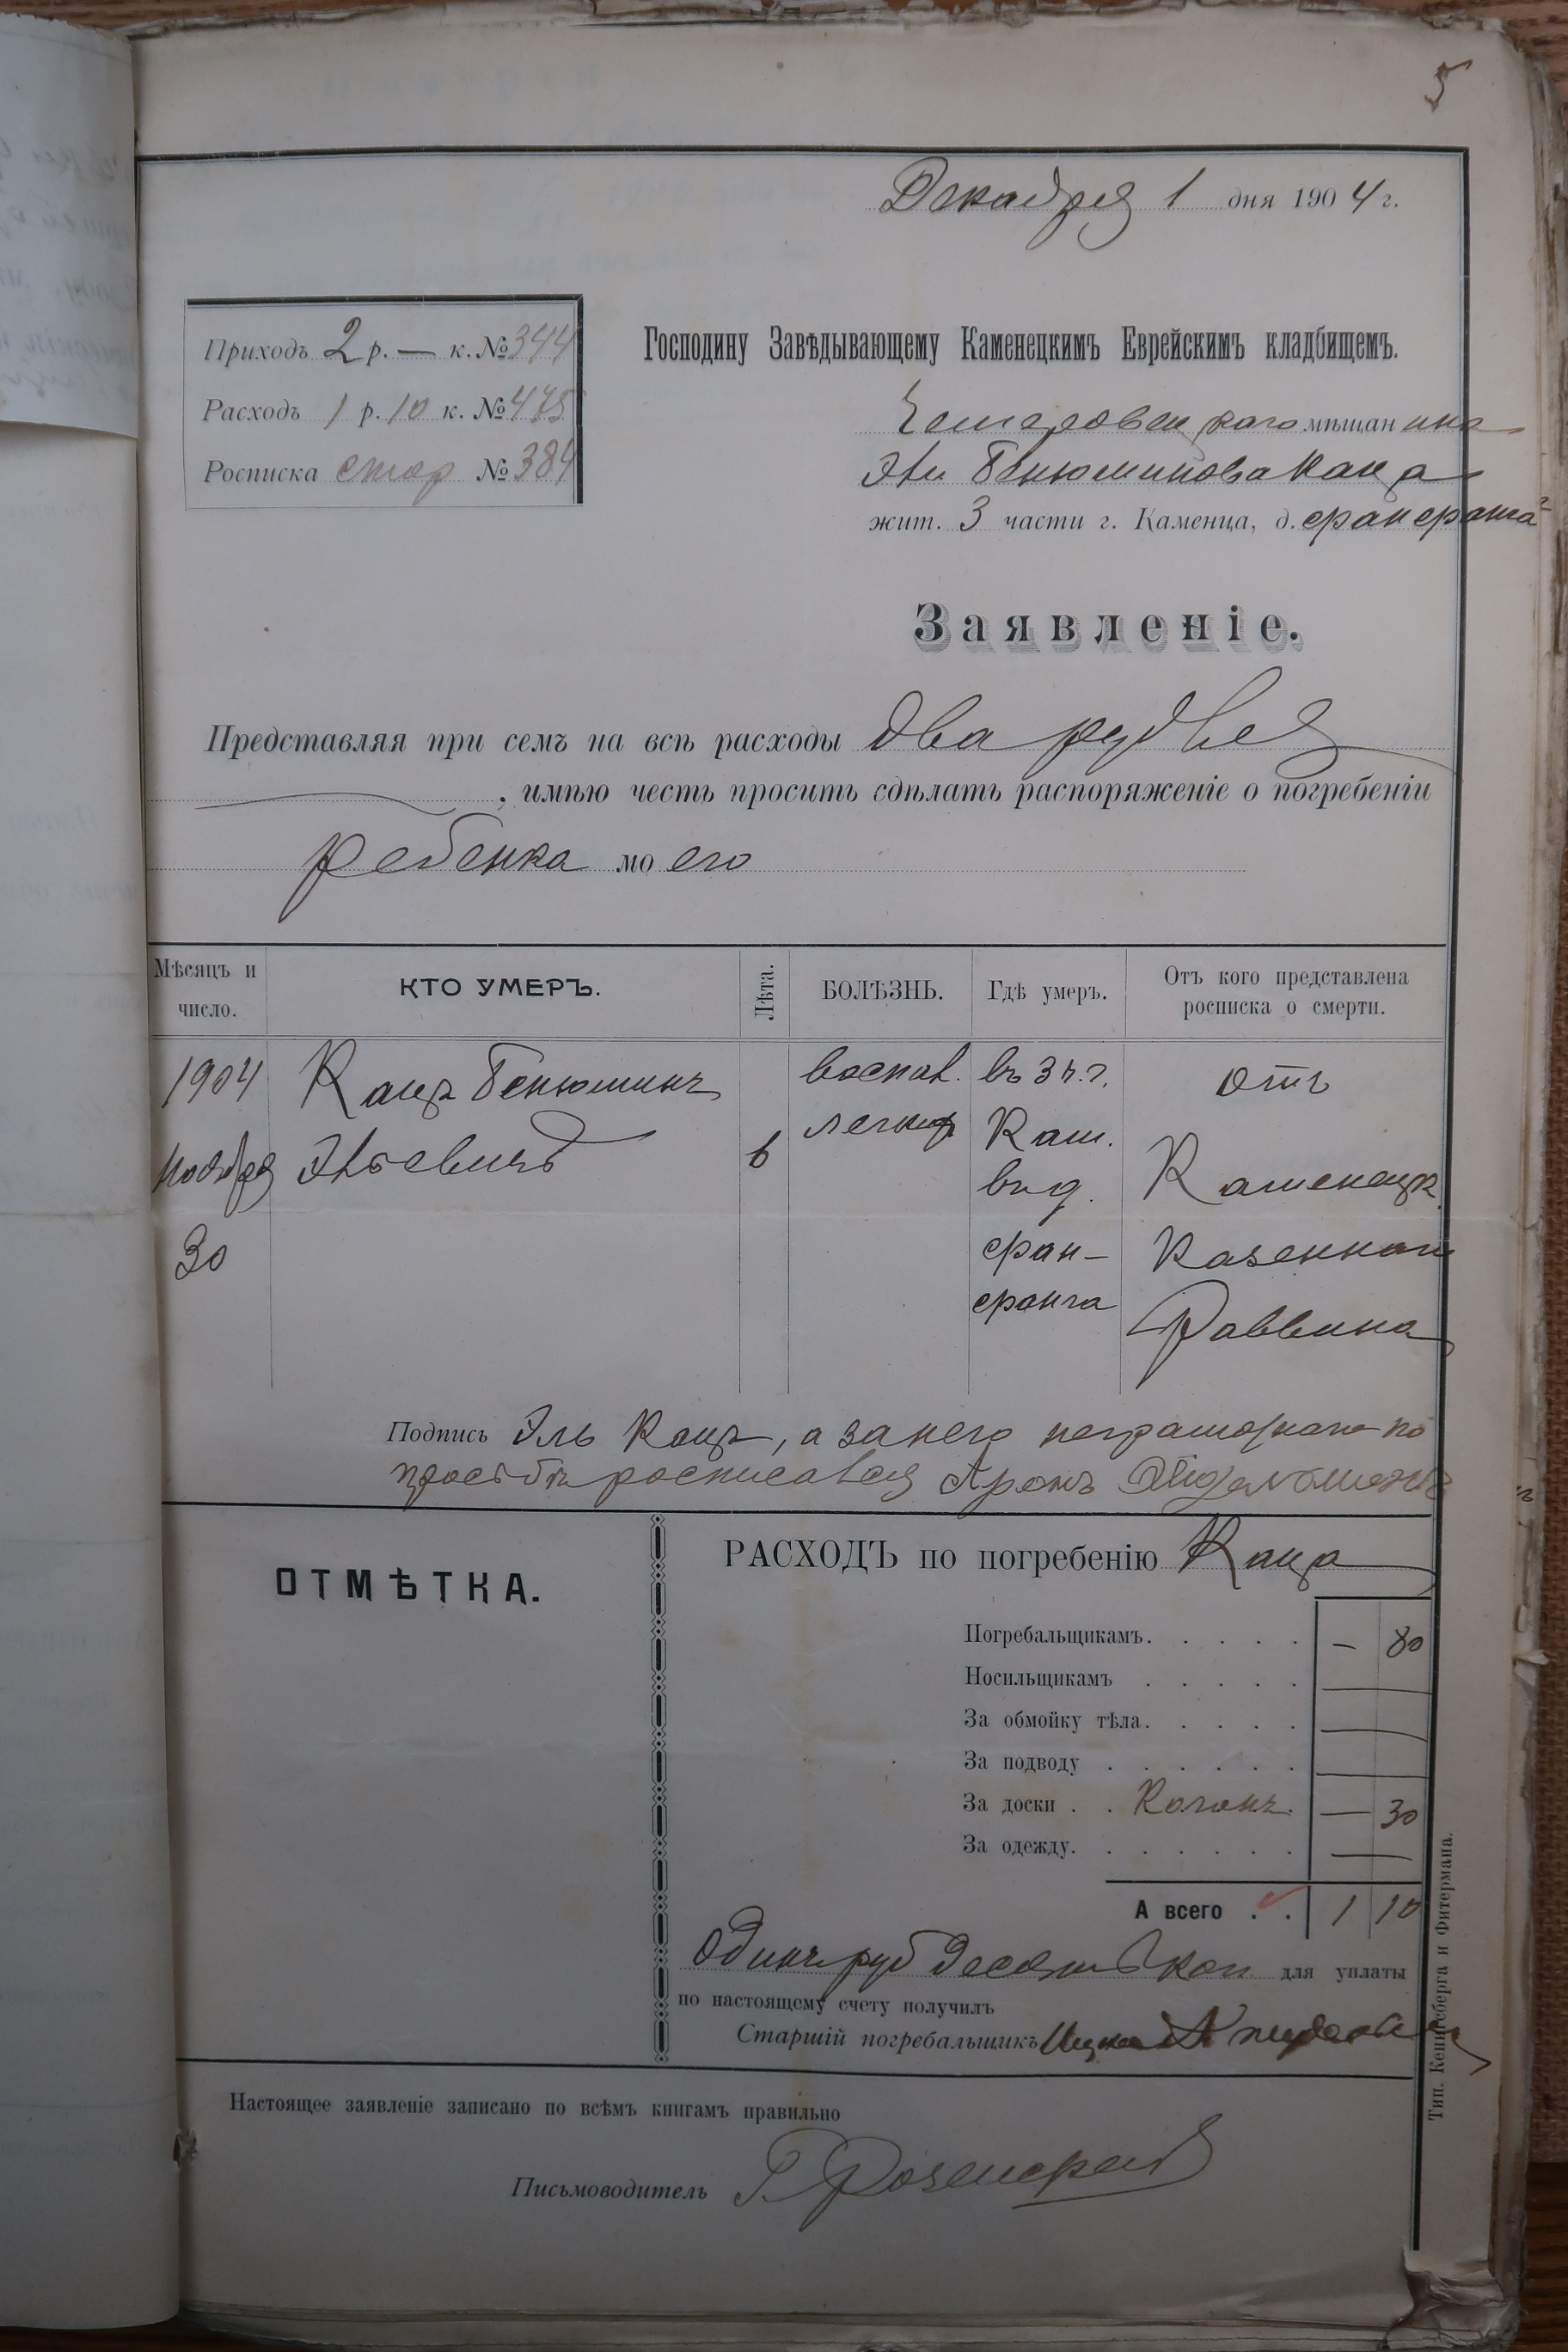 5
Декабря 1 дня 1904 г.
Приходъ 2 р. — к. № 344
Расходъ 1 р. 10 к. № 475
Росписка стор № 384
Господину Завѣдывающему Каменецкимъ Еврейскимъ кладбищемъ.
Чемеровецкаго мѣщанина
Эли Бенюминова Каца
жит. 3 части г. Каменца, д.
Заявленіе.
Представляя при семъ на всѣ расходы два рубля
, имѣю честь просить сдѣлать распоряженіе о погребеніи
ребенка моего
Мѣсяцъ и число.
КТО УМЕРЪ.
Лѣта.
БОЛѢЗНЬ.
Гдѣ умеръ.
Отъ кого представлена росписка о смерти.
1904 Кацъ Бенюминъ воспал. въ 3 ч. г. отъ
Ноября Эльевичъ 6 легкихъ Кам. Каменецк.
30 въ д. Казеннаго
Раввина
Подпись Эль Кацъ, а за него неграмотнаго по
просьбѣ росписался Аронъ
ОТМѢТКА.
РАСХОДЪ по погребенію Каца
Погребальщикамъ. — 80
Носильщикамъ —
За обмойку тѣла. —
За подводу —
За доски . . Коганъ. — 30
За одежду. —
А всего . . 1 10
Одинъ руб десять коп для уплаты
по настоящему счету получилъ
Старшій погребальщикъ Ицко
Настоящее заявленіе записано по всѣмъ книгамъ правильно
Письмоводитель
Тип. Кенигсберга и Фитермана.